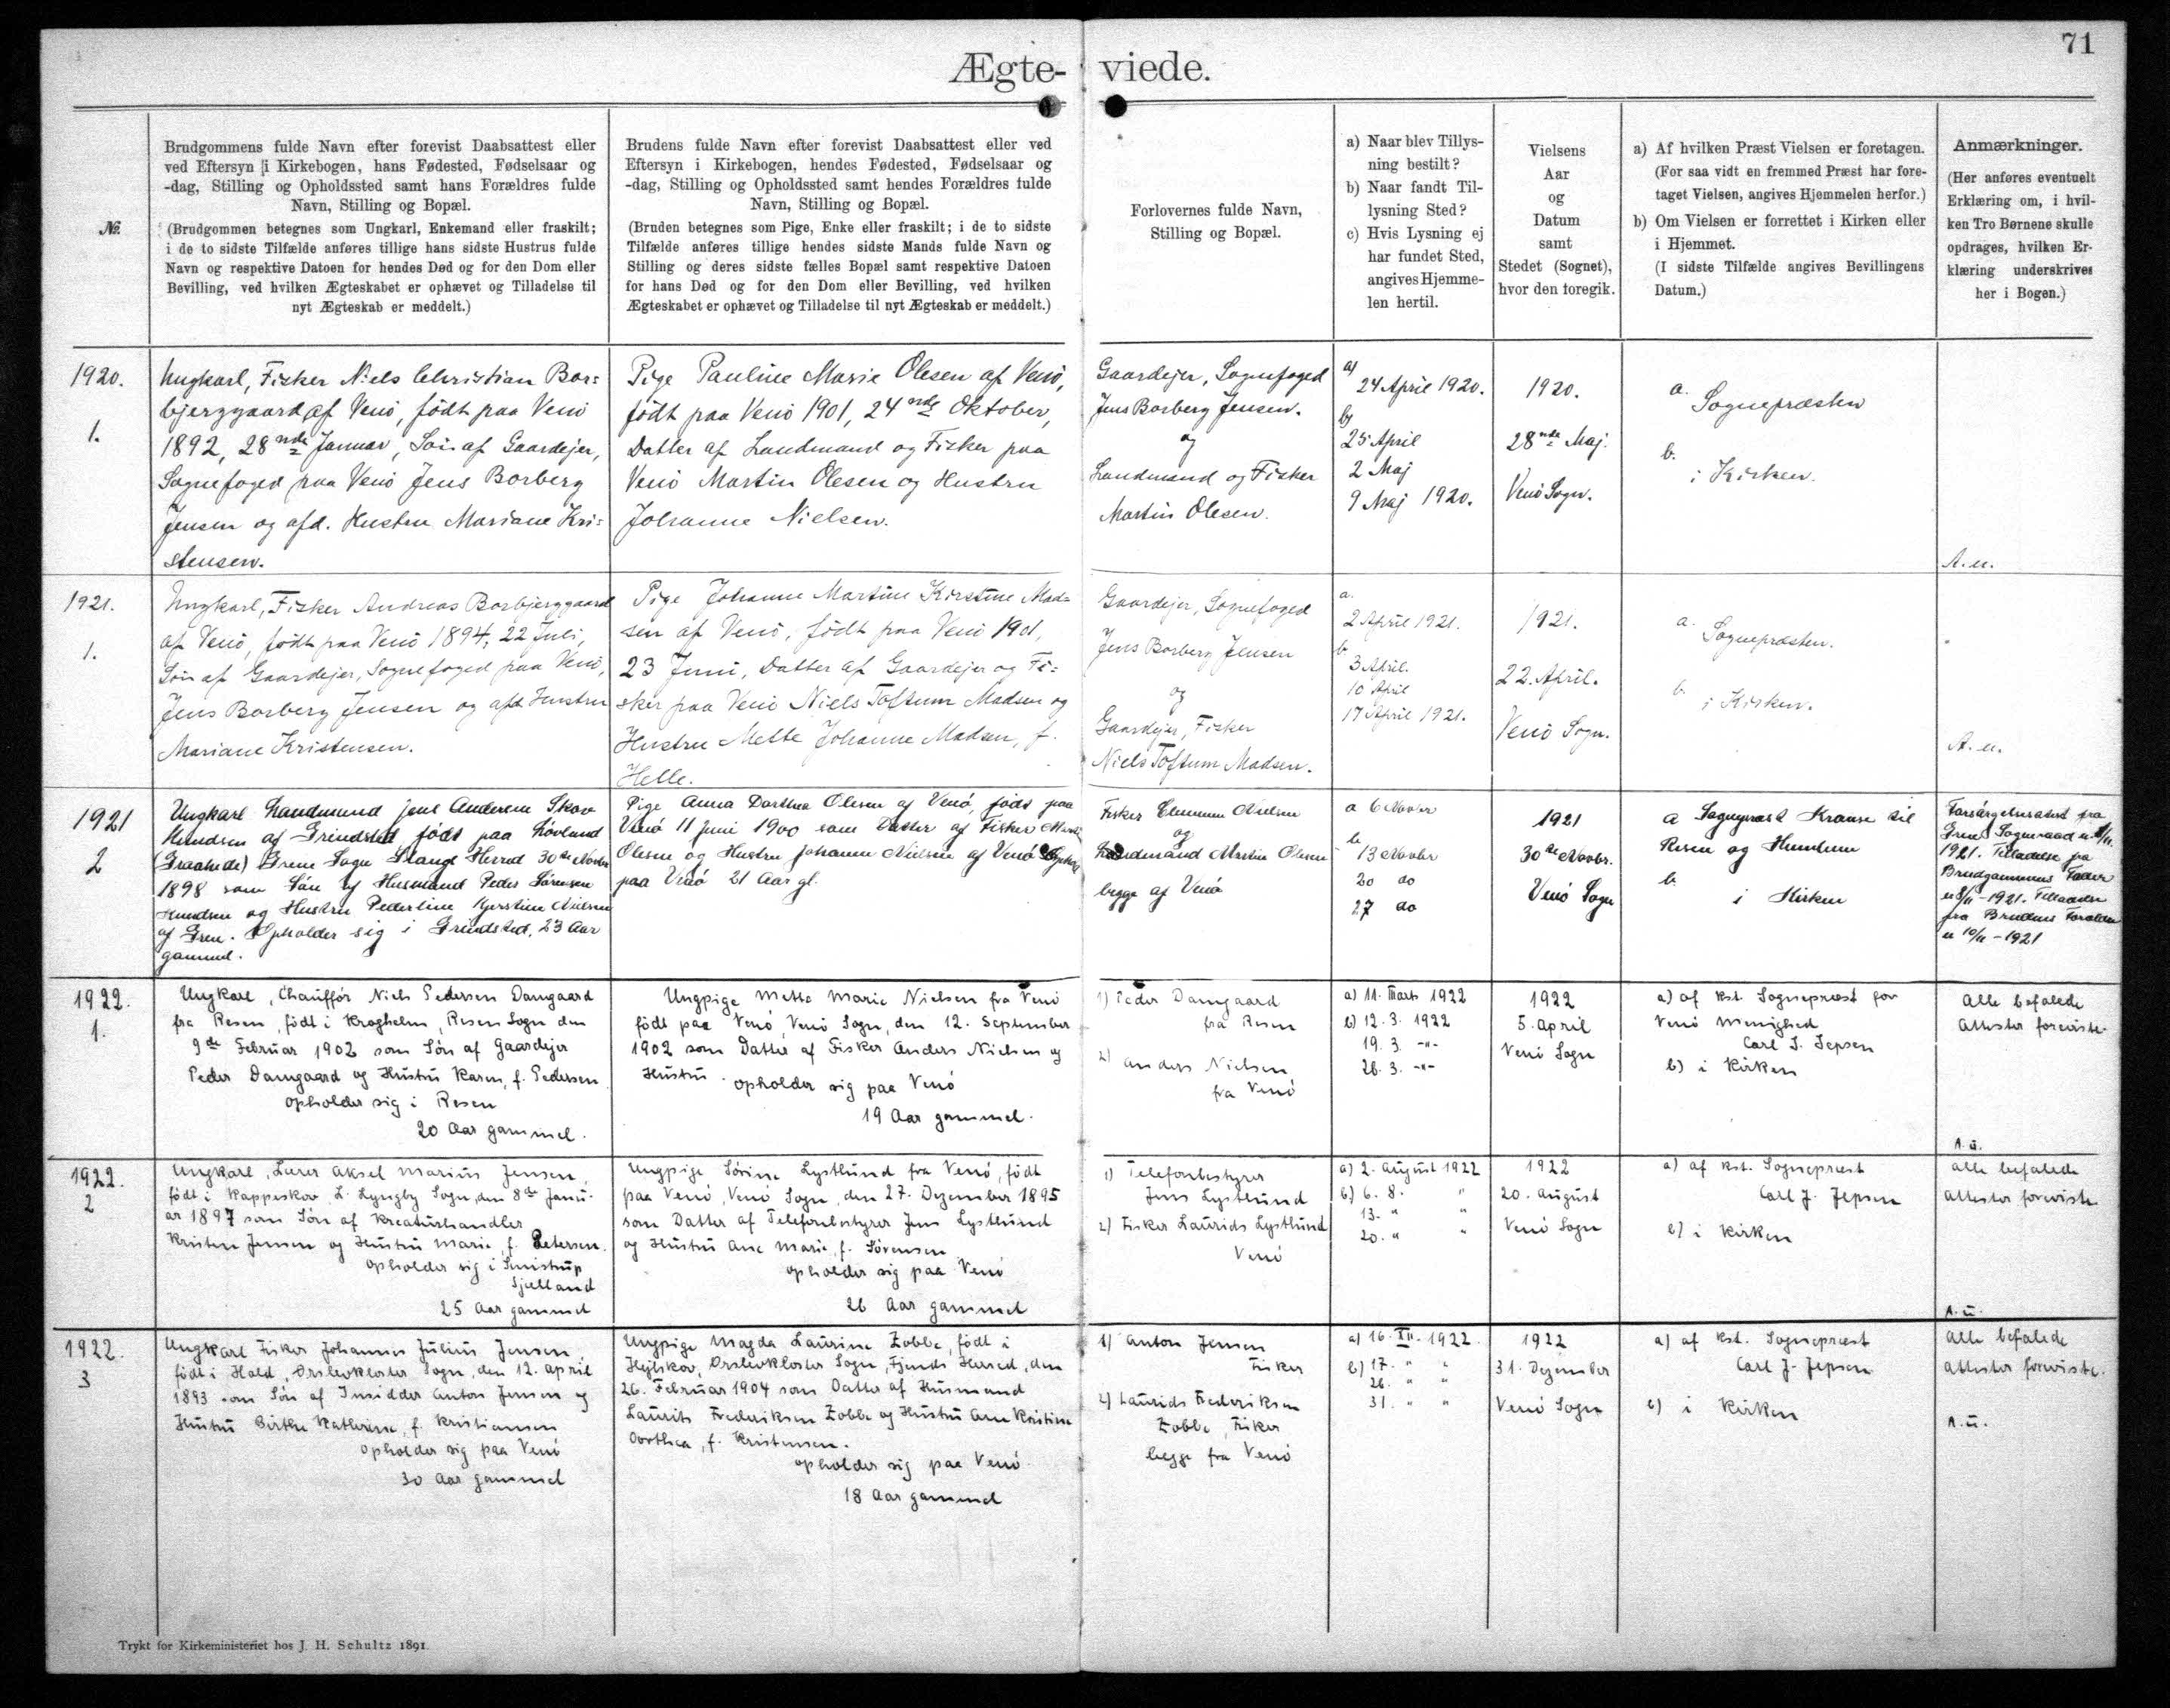 71
Ægte- viede.
№
Brudgommens fulde Navn efter forevist Daabsattest eller
ved Eftersyn i Kirkebogen, hans Fødested, Fødselsaar og
-dag, Stilling og Opholdssted samt hans Forældres fulde
Navn, Stilling og Bopæl.
(Brudgommen betegnes som Ungkarl, Enkemand eller fraskilt;
i de to sidste Tilfælde anføres tillige hans sidste Hustrus fulde
Navn og respektive Datoen for hendes Død og for den Dom eller
Bevilling, ved hvilken Ægteskabet er ophævet og Tilladelse til
nyt Ægteskab er meddelt.)
Brudens fulde Navn efter forevist Daabsattest eller ved
Eftersyn i Kirkebogen, hendes Fødested, Fødselsaar og
-dag, Stilling og Opholdssted samt hendes Forældres fulde
Navn, Stilling og Bopæl.
(Bruden betegnes som Pige, Enke eller fraskilt; i de to sidste
Tilfælde anføres tillige hendes sidste Mands fulde Navn og
Stilling og deres sidste fælles Bopæl samt respektive Datoen
for hans Død og for den Dom eller Bevilling, ved hvilken
Ægteskabet er ophævet og Tilladelse til nyt Ægteskab er meddelt.)
Forlovernes fulde Navn,
Stilling og Bopæl.
a) Naar blev Tillys-
ning bestilt?
b) Naar fandt Til-
lysning Sted?
c) Hvis Lysning ej
har fundet Sted,
angives Hjemme-
len hertil.
Vielsens
Aar
og
Datum
samt
Stedet (Sognet),
hvor den foregik.
a) Af hvilken Præst Vielsen er foretagen.
(For saa vidt en fremmed Præst har fore-
taget Vielsen, angives Hjemmelen herfor.)
b) Om Vielsen er forrettet i Kirken eller
i Hjemmet.
(I sidste Tilfælde angives Bevillingens
Datum.)
Anmærkninger.
(Her anføres eventuelt
Erklæring om, i hvil-
ken Tro Børnene skulle
opdrages, hvilken Er-
klæring underskrives
her i Bogen.)
1920.
1.
Ungkarl, Fisker Niels Christian Bor=
bjerggaard af Venö, födt paa Venö
1892, 28nde Januar, Sön af Gaardejer,
Sognefoged paa Venö Jens Borberg
Jensen og afd. Hustru Mariane Kri=
stensen.
Pige Pauline Marie Olesen af Venö,
födt paa Venö 1901, 24nde Oktober,
Datter af Landmand og Fisker paa
Venö Martin Olesen og Hustru
Johanne Nielsen.
Gaardejer, Sognefoged
Jens Borberg Jensen.
og
Landmand og Fisker
Martin Olesen.
a)
24 April 1920.
b)
25 April
2 Maj
9 Maj 1920.
1920.
28nde Maj.
Venö Sogn.
a. Sognepræsten
b. i Kirken.
A.u.
1921.
1.
Ungkarl, Fisker Andreas Borbjerggaard
af Venö, födt paa Venö 1894, 22 Juli,
Sön af Gaardejer, Sognefoged paa Venö,
Jens Borberg Jensen og afd. Hustru
Mariane Kristensen.
Pige Johanne Martine Kirstine Mad=
sen af Venö, födt paa Venö 1901,
23 Juni, Datter af Gaardejer og Fi=
sker paa Venö Niels Toftum Madsen og
Hustru Mette Johanne Madsen, f.
Helle.
Gaardejer, Sognefoged
Jens Borberg Jensen
og
Gaardejer, Fisker
Niels Toftum Madsen.
a.
2 April 1921.
b.
3 April.
10 April
17 April 1921.
1921.
22. April.
Venö Sogn.
a. Sognepræsten.
b. i Kirken.
A.u.
1921
2
Ungkarl Landmand Jens Andersen Skov
Knudsen af Grindsted født paa Løvlund
(Graahede) Grene Sogn Slaugs Herred 30te Novbr
1898 som Søn af Husmand Peder Sørensen
Knudsen og Hustru Pederline Kjerstine Nielsen
af Grene. Opholder sig i Grindsted, 23 Aar
gammel.
Pige Anna Dorthea Olesen af Venø, født paa
Venø 11 Juni 1900 som Datter af Fisker Martin
Olesen og Hustru Johanne Nielsen af Venø Opholder
paa Venø 21 Aar gl.
Fisker Clemmen Nielsen
og
Landmand Martin Olesen
begge af Venø
a 6 Novbr
b 13 Novbr
20 do
27 do
1921
30te Novbr.
Venø Sogn
a Sognepræst Krause til
Resen og Humlum
b i Kirken
Forsörgelsesattest fra
Grene Sogneraad
1921. Tilladelse fra
Brudgommens Fader
1921. Tilladelse
fra Brudens Forældre
10/11 - 1921
1922.
1.
Ungkarl, Chauffør Niels Pedersen Damgaard
fra Resen, født i Krogholm, Resen Sogn den
9de Februar 1902 som Søn af Gaardejer
Peder Damgaard og Hustru Karen, f. Pedersen
opholder sig i Resen
20 Aar gammel.
Ungpige Mette Marie Nielsen fra Venø
født paa Venø, Venø Sogn, den 12. September
1902 som Datter af Fisker Anders Nielsen og
Hustru . opholder sig paa Venø
19 Aar gammel.
1) Peder Damgaard
fra Resen
2) Anders Nielsen
fra Venø
a) 11. Marts 1922
b) 12. 3. 1922
19. 3. -"-
26. 3. -"-
1922
5. April
Venø Sogn
a) af kst. Sognepræst for
Venø Menighed
Carl J. Jepsen
b) i Kirken
Alle befalede
Attester foreviste.
A.u.
1922.
2
Ungkarl, Lærer Aksel Marius Jensen,
født i Kappeskov L. Lyngby Sogn, den 8de Janu-
ar 1897 som Søn af Kreaturhandler
Kristen Jensen og Hustru Marie, f. Petersen.
opholder sig i
Sjælland
25 Aar gammel
Ungpige Sørine Lystlund fra Venø, født
paa Venø, Venø Sogn, den 27. Dezember 1895
som Datter af Telefonbestyrer Jens Lystlund
og Hustru Ane Marie, f. Sørensen
opholder sig paa Venø
26 Aar gammel
1) Telefonbestyrer
Jens Lystlund
2) Fisker Laurids Lystlund
Venø
a) 2. August 1922
b) 6. 8. "
13. " "
20. " "
1922
20. August
Venø Sogn
a) af kst. Sognepræst
Carl J. Jepsen
b) i Kirken
Alle befalede
Attester foreviste
A.u.
1922.
3
Ungkarl Fisker Johannes Julius Jensen,
født i Hald, Ørslevkloster Sogn, den 12. April
1893 som Søn af Indsidder Anton Jensen og
Hustru Birthe Kathrine, f. Kristiansen
opholder sig paa Venø
30 Aar gammel
Ungpige Magda Laurine Zobbe, født i
Hejlskov, Ørslevkloster Sogn, Fjends Herred, den
26. Februar 1904 som Datter af Husmand
Laurits Frederiksen Zobbe og Hustru Ane Kristine
Dorthea, f. Kristensen.
opholder sig paa Venø
18 Aar gammel
1) Anton Jensen
Fisker
2) Laurids Frederiksen
Zobbe, Fisker
begge fra Venø
a) 16. XII. 1922.
b) 17. " "
26. " "
31. " "
1922
31. Dezember
Venø Sogn
a) af kst. Sognepræst
Carl J. Jepsen
b) i Kirken
Alle befalede
Attester foreviste.
A.u.
Trykt for Kirkeministeriet hos J. H. Schultz 1891.